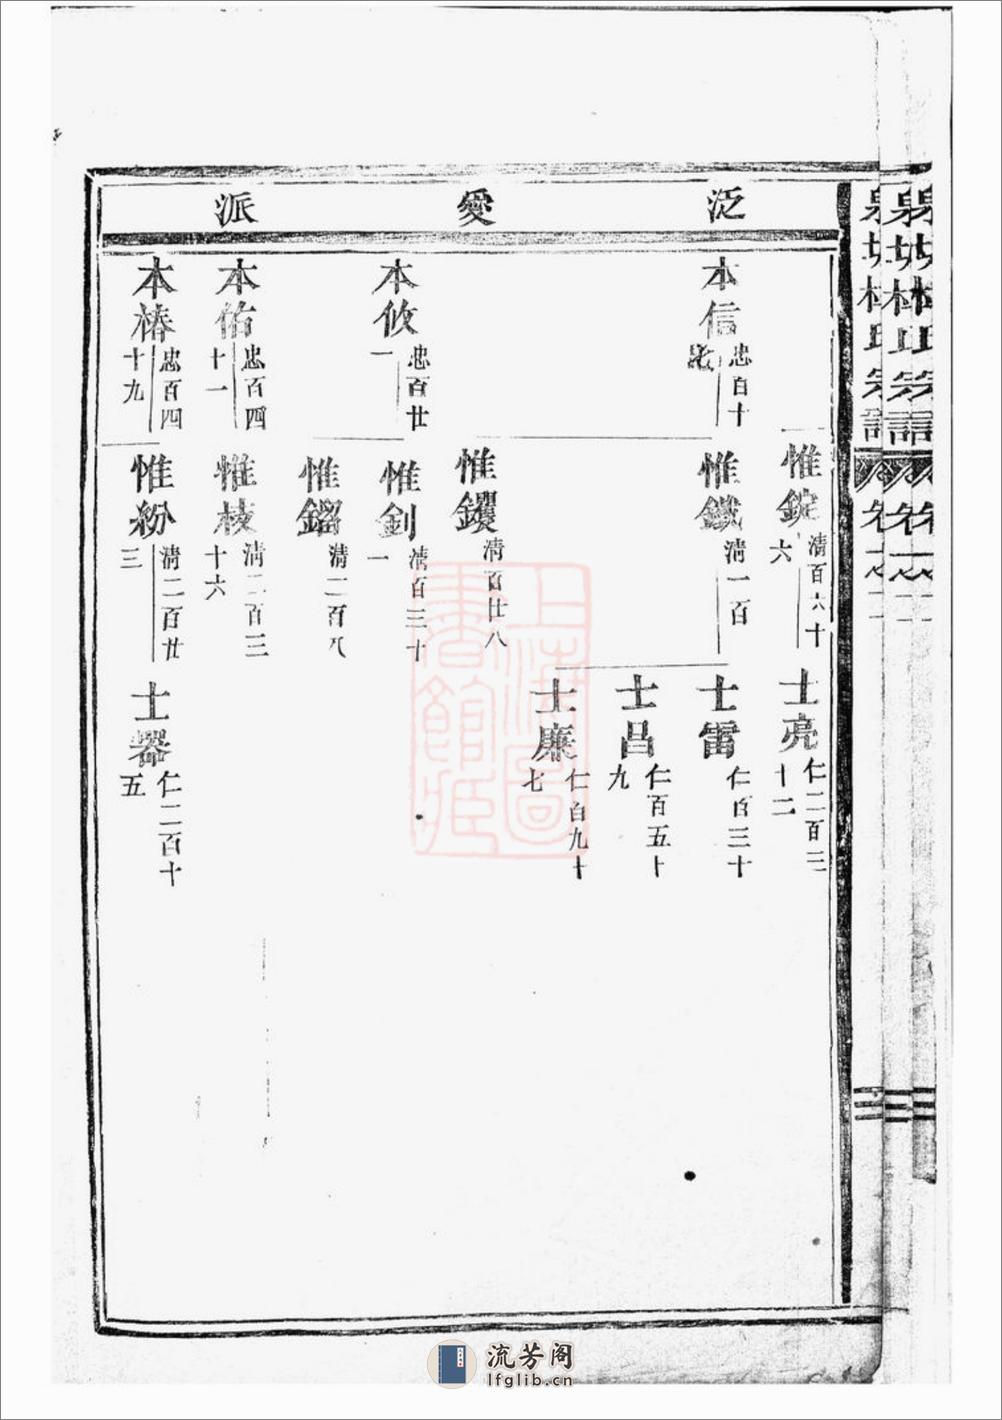 泉城林氏宗譜 卷之二
三
泛愛派
本信 忠百十
本攸 忠百廿一
本佑 忠百四十一
本椿 忠百四十九
惟錠 清百六十六
惟鐵 清一百
惟钁 清百廿八
惟釗 清百三十一
惟鎦 清二百八
惟枝 清二百三十六
惟紛 清二百廿三
士亮 仁二百三十二
士雷 仁百三十
士昌 仁百五十九
士廉 仁百九十七
士器 仁二百十五
上海圖書館藏
流芳阁
lfglib.cn